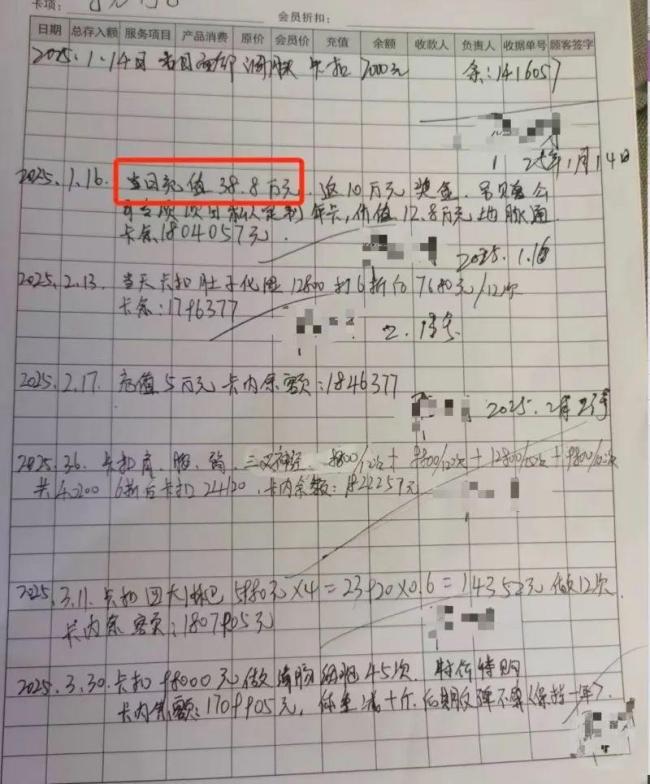 卡项：
会员折扣：
日期 总存入额 服务项目 产品消费 原价 会员价 充值 余额 收款人 负责人 收据单号 顾客签字
2025.1.14日 卡扣 7000元 余：1416057
25年1月14日
2025.1.16. 当日充值38.8万元. 返10万元奖金.
年卡，价值12.8万元地脉通
卡余1804057元.
2025.1.16
2025.2.13. 当天卡扣肚子化 12800打6折后7680元/12次
卡余：1796377
2.13号.
2025.2.17. 充值5万元 卡内余额：1846377
2025.2月
2025.3.6. 卡扣肩、 三叉神经. 9800/12次+12800/12次+9800/12次
共40200 6折后卡扣24120. 卡内余额：1822257元
2025.3.11. 卡扣四大淋巴5980元×4=23920×0.6=14352元 做12次
卡内余额：1807905元
2025.3.30.卡扣98000元做 45次.
卡内余额：1709905元，体重减十斤. 后期反弹不算(保持一年).